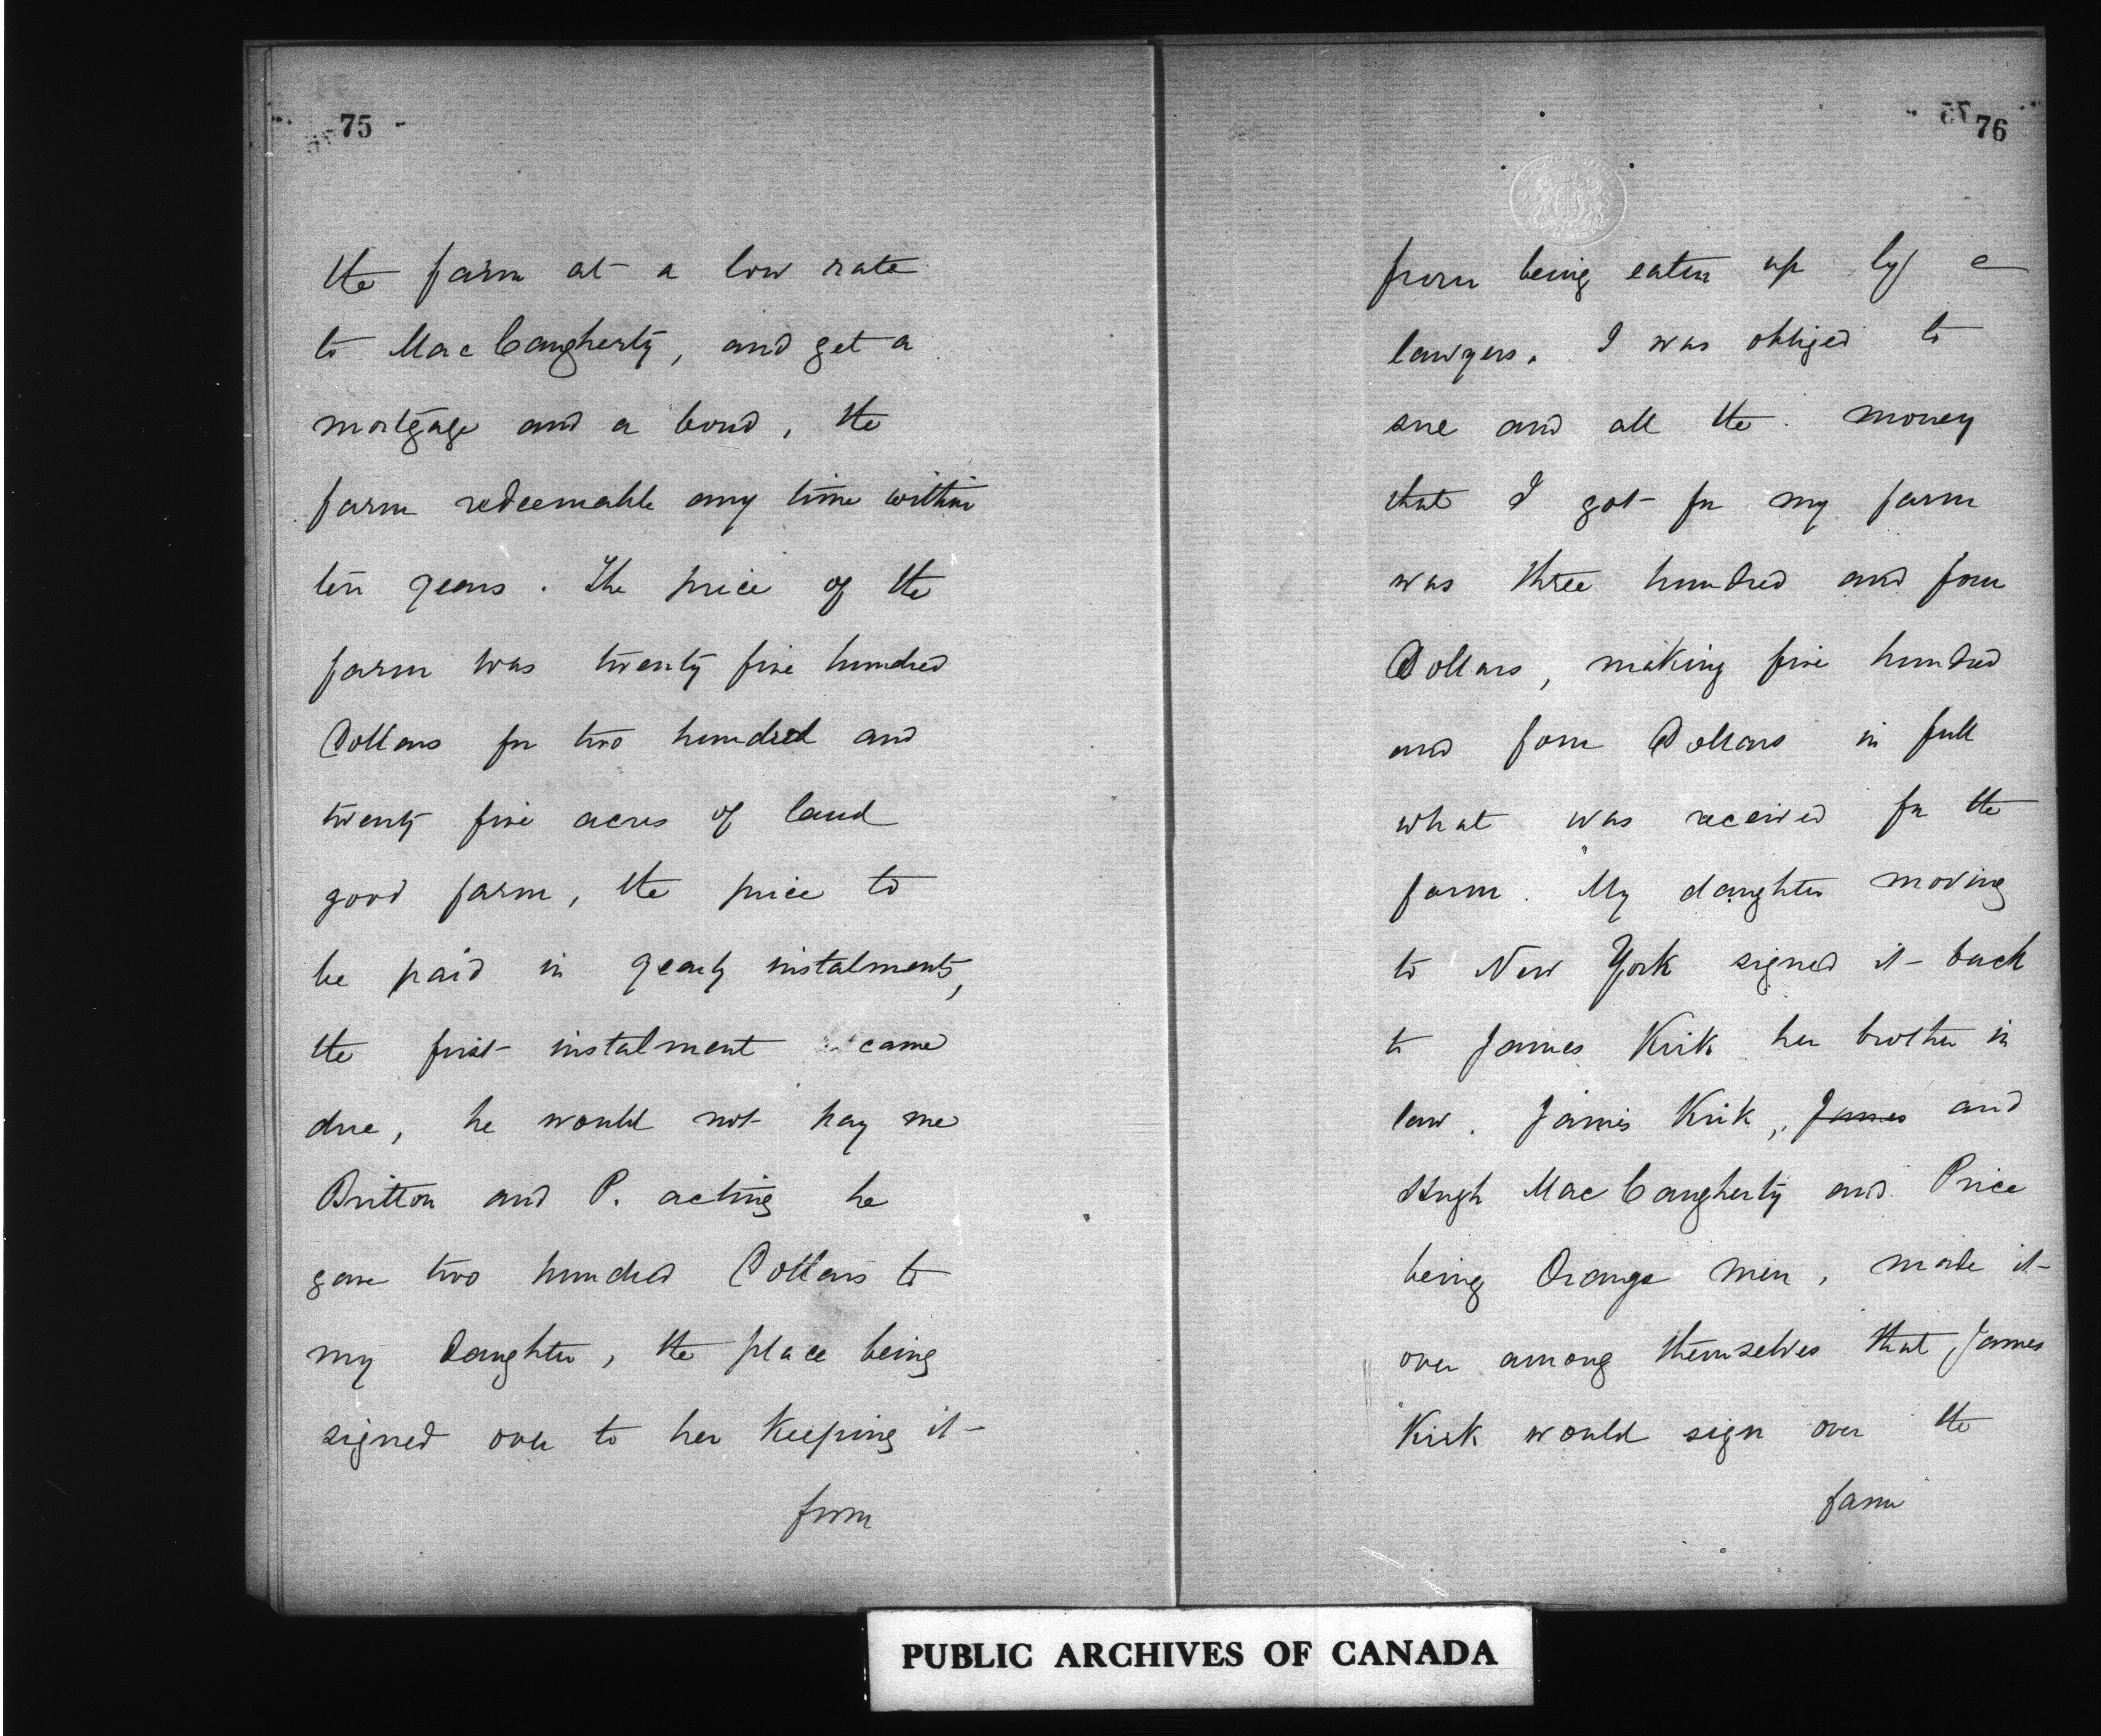 75 -
the farm at a low rate
to Mac Caugherty, and get a
mortgage and a bond, the
farm redeemable any time within
ten years. The price of the
farm was twenty five hundred
Dollars for two hundred and
twenty five acres of land
good farm, the price to
be paid in yearly instalments,
the first instalment came
due, he would not pay me
Britton and P. acting he
gave two hundred Dollars to
my Daughter, the place being
signed over to her keeping it
from
76
from being eaten up by
lawyers. I was obliged to
sue and all the money
that I got for my farm
was three hundred and four
Dollars, making five hundred
and four Dollars in full
what was received for the
farm. My daughter moving
to New York signed it back
to James Kirk her brother in
law. James Kirk, James and
Hugh Mac Caugherty and Price
being Orange men, made it
over among themselves that James
Kirk would sign over the
farm
PUBLIC ARCHIVES OF CANADA